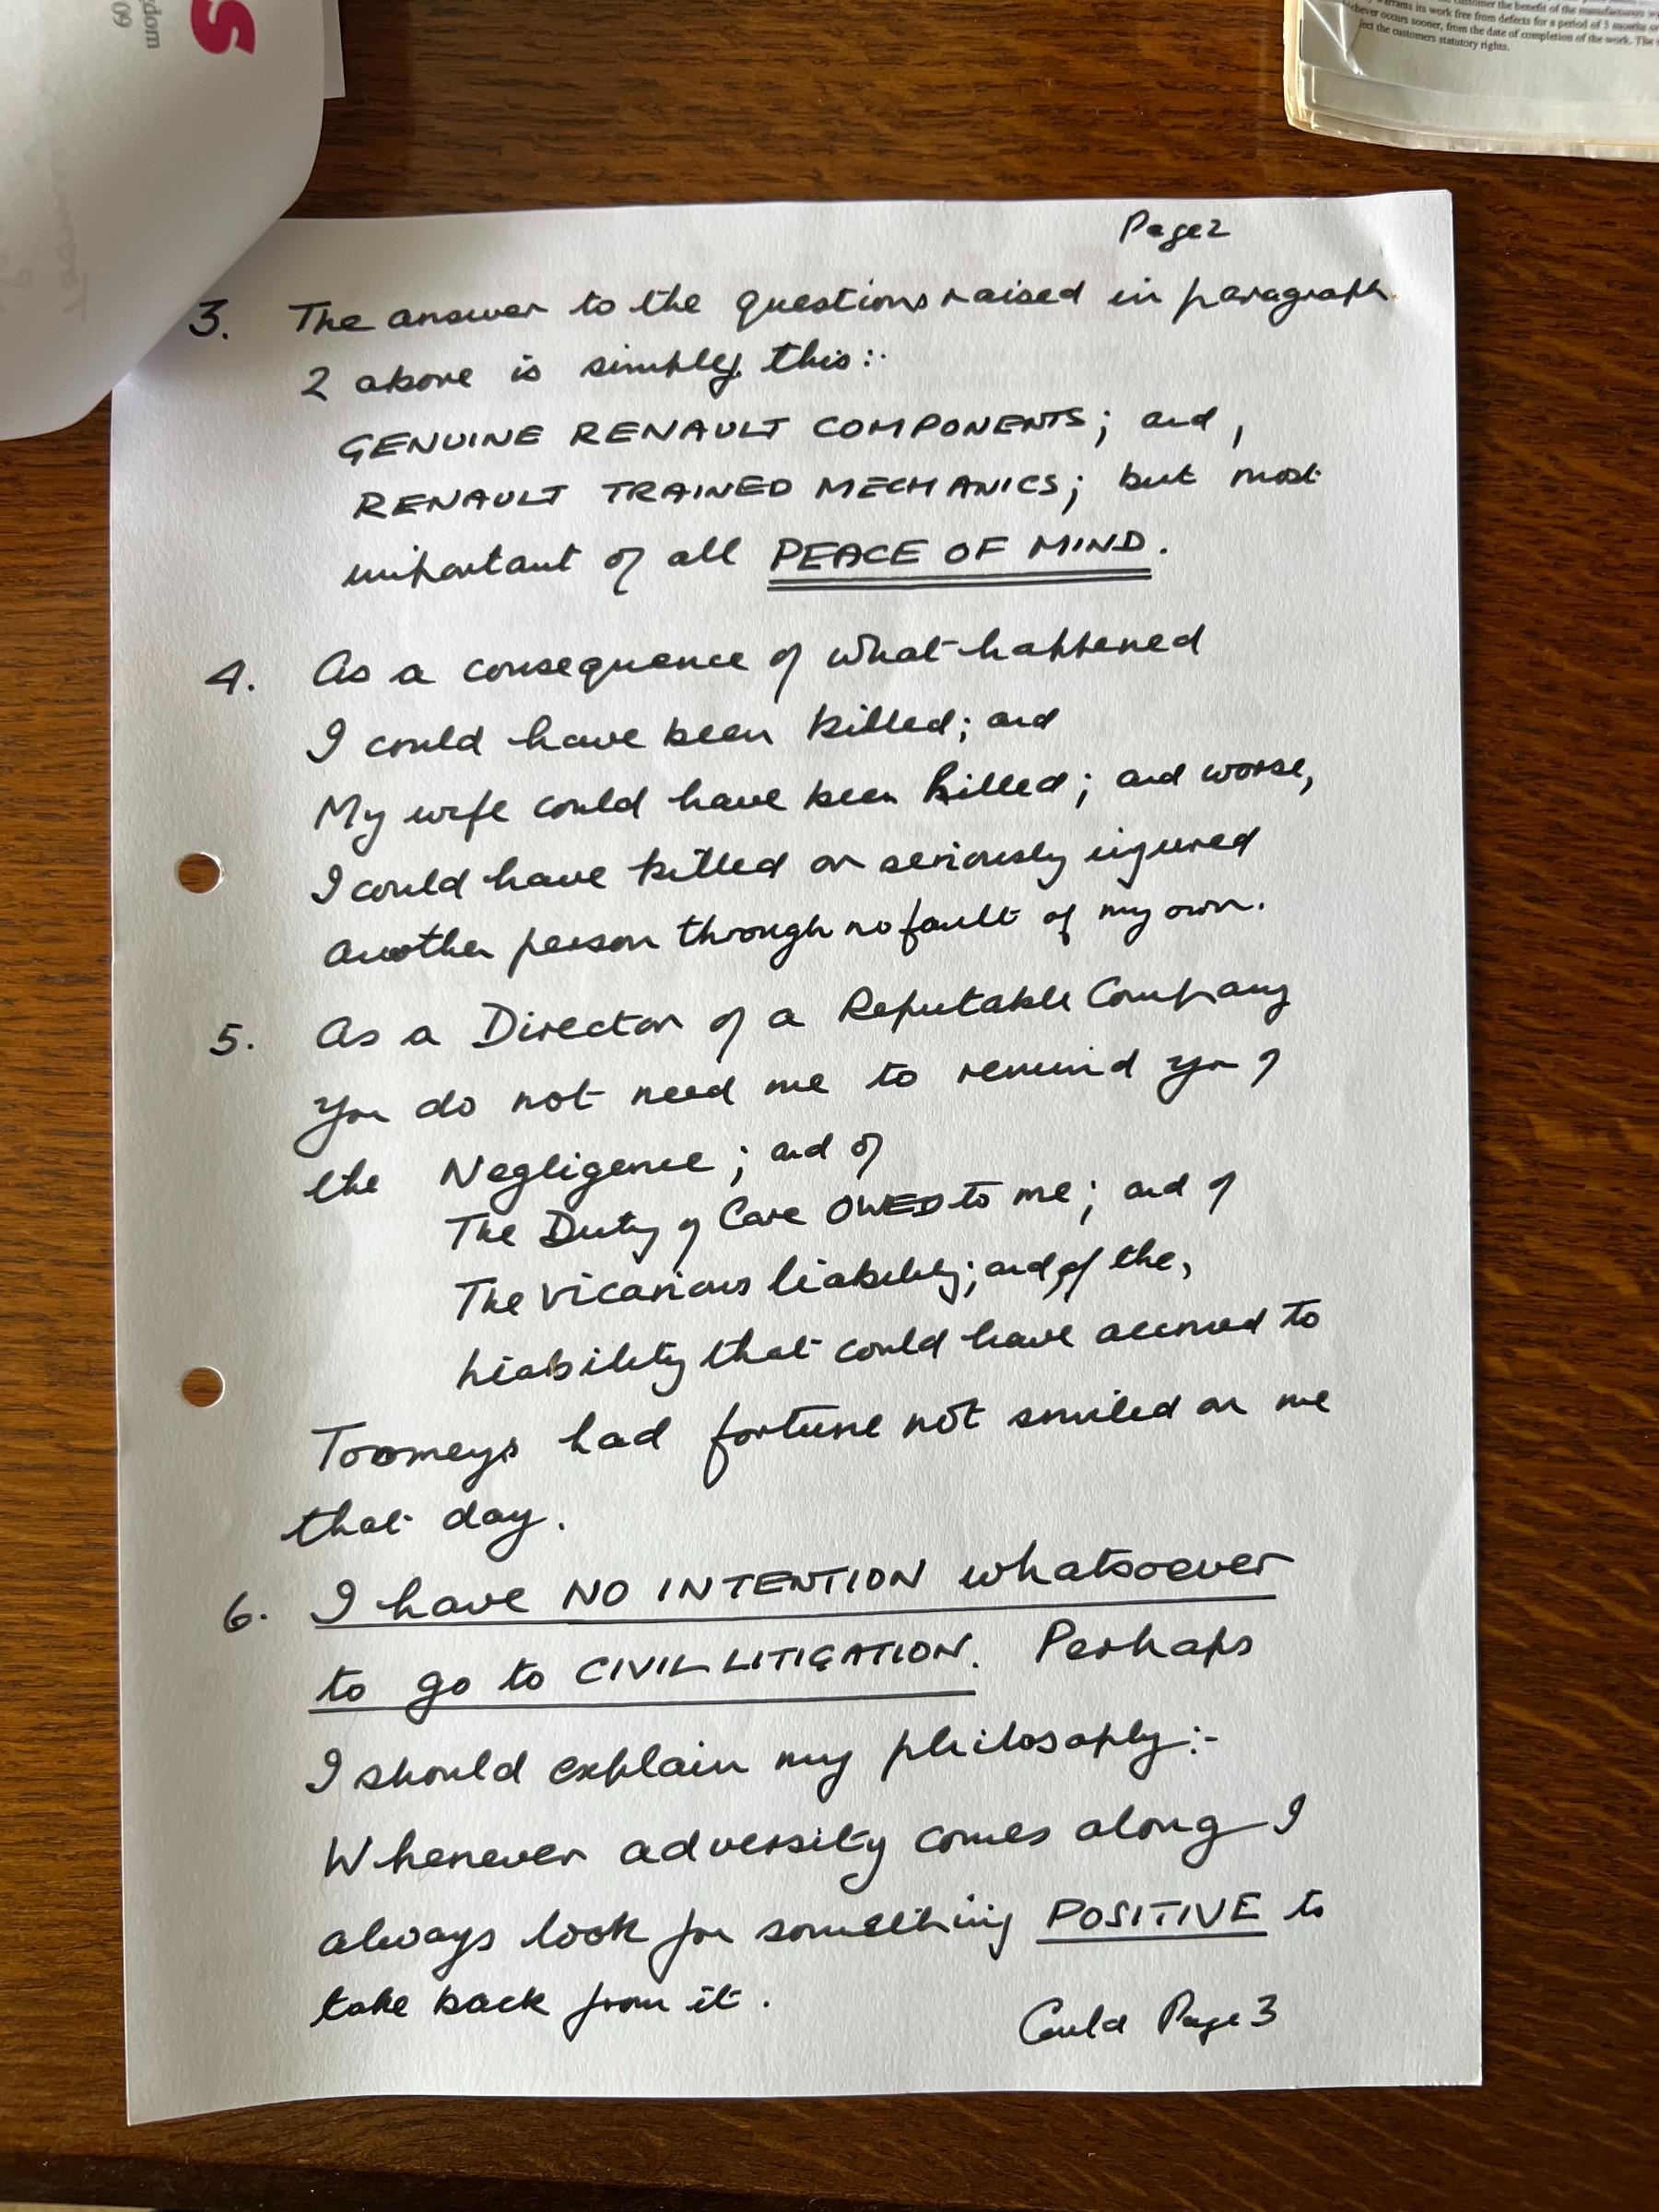 S
dom
60
customer the benefit of the manufacturers
warrants its work free from defects for a period of 3 months or
ichever occurs sooner, from the date of completion of the work. The
ect the customers statutory rights.
Page 2
3. The answer to the questions raised in paragraph
2 above is simply this:-
GENUINE RENAULT COMPONENTS; and,
RENAULT TRAINED MECHANICS; but most
important of all PEACE OF MIND.
4. As a consequence of what happened
I could have been killed; and
My wife could have been killed; and worse,
I could have killed or seriously injured
another person through no fault of my own.
5. As a Director of a Reputable Company
you do not need me to remind you of
the Negligence; and of
The Duty of Care OWED to me; and of
The vicarious liability; and of the,
liability that could have accrued to
Toomeys had fortune not smiled on me
that day.
6. I have NO INTENTION whatsoever
to go to CIVIL LITIGATION. Perhaps
I should explain my philosophy:-
Whenever adversity comes along I
always look for something POSITIVE to
take back from it.
Contd Page 3